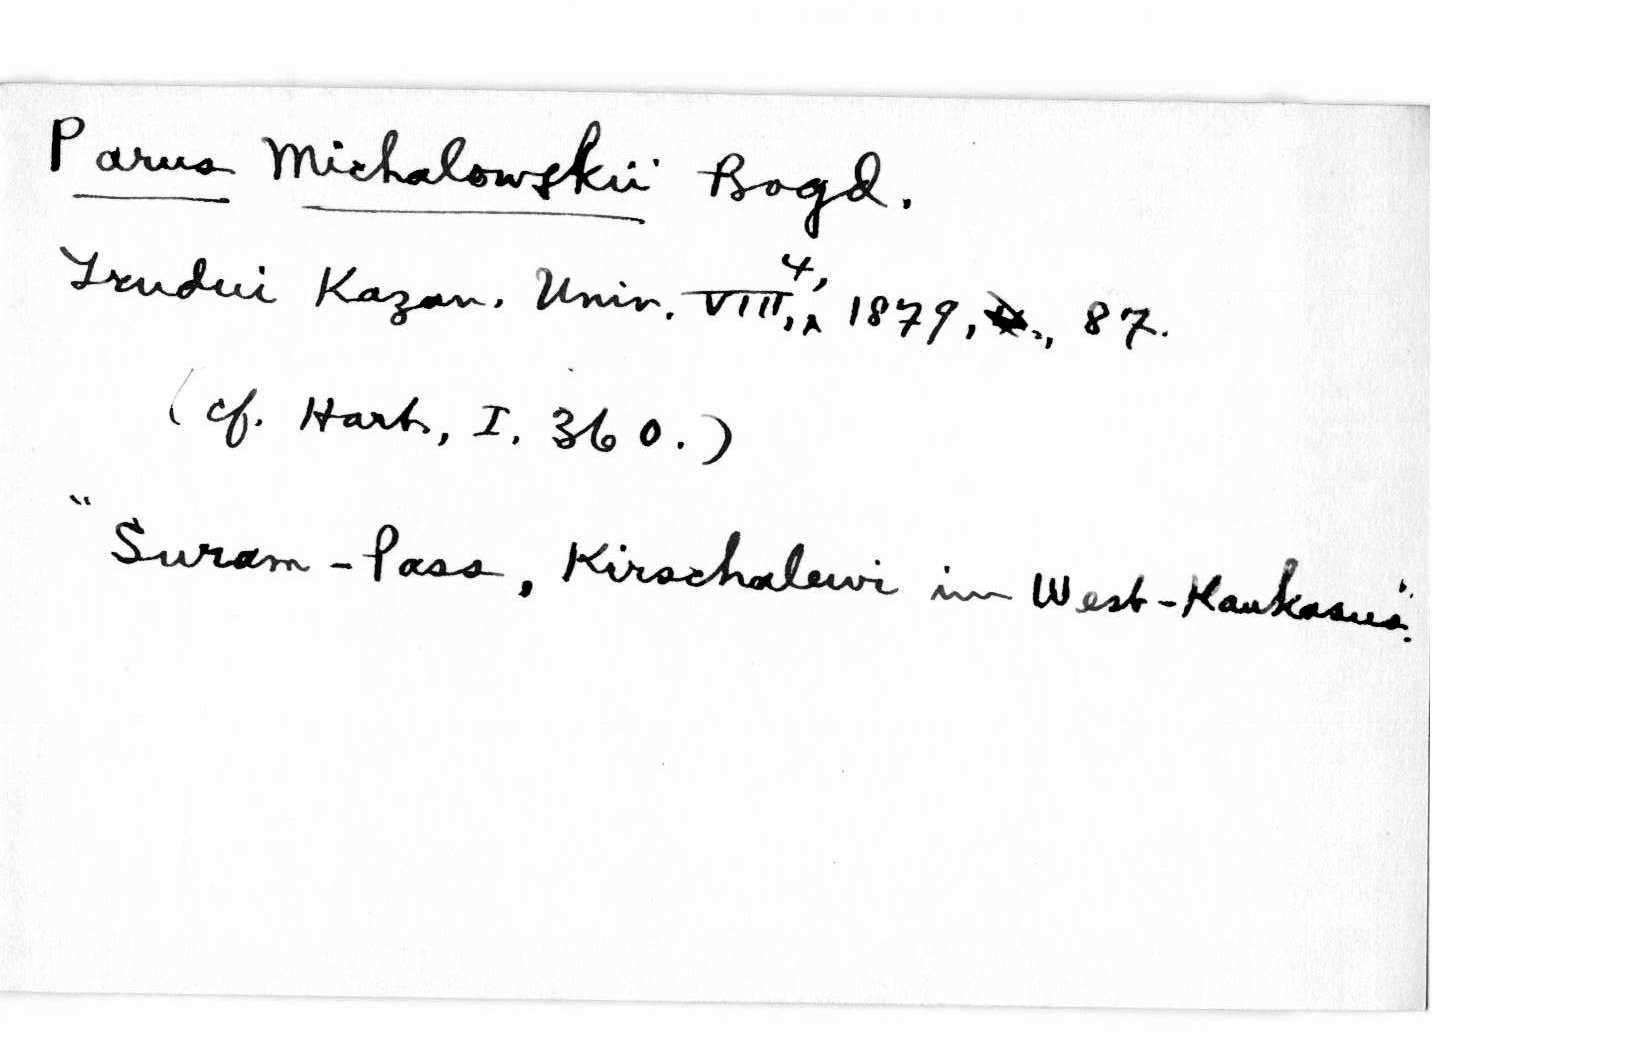 Parus Michalowskii Bogd.
Trudui Kazan. Univ. VIII, 4, 1879, 87.
(cf. Hart., I. 360.)
"Suram-Pass, Kirschalewi im West-Kaukasus".